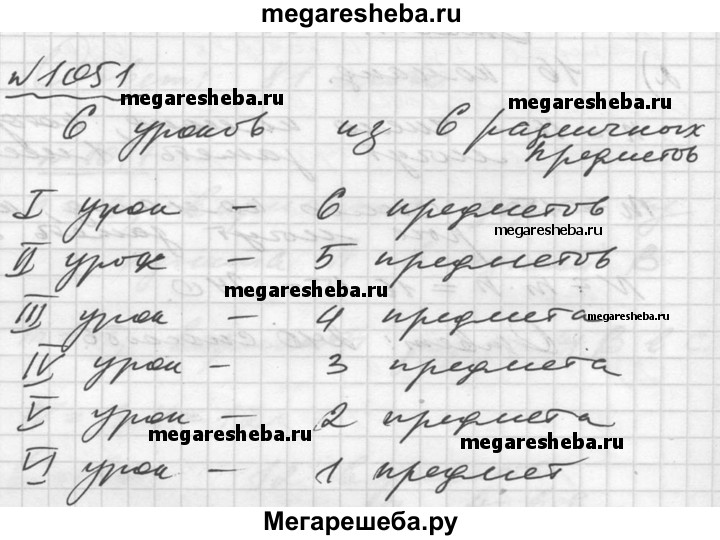 megaresheba.ru
№1051
megaresheba.ru megaresheba.ru
6 уроков из 6 различных
предметов
I урок – 6 предметов
megaresheba.ru
II урок – 5 предметов
megaresheba.ru
III урок – 4 предмета megaresheba.ru
IV урок – 3 предмета
V урок – 2 предмета
megaresheba.ru megaresheba.ru
VI урок – 1 предмет
Мегарешеба.ру